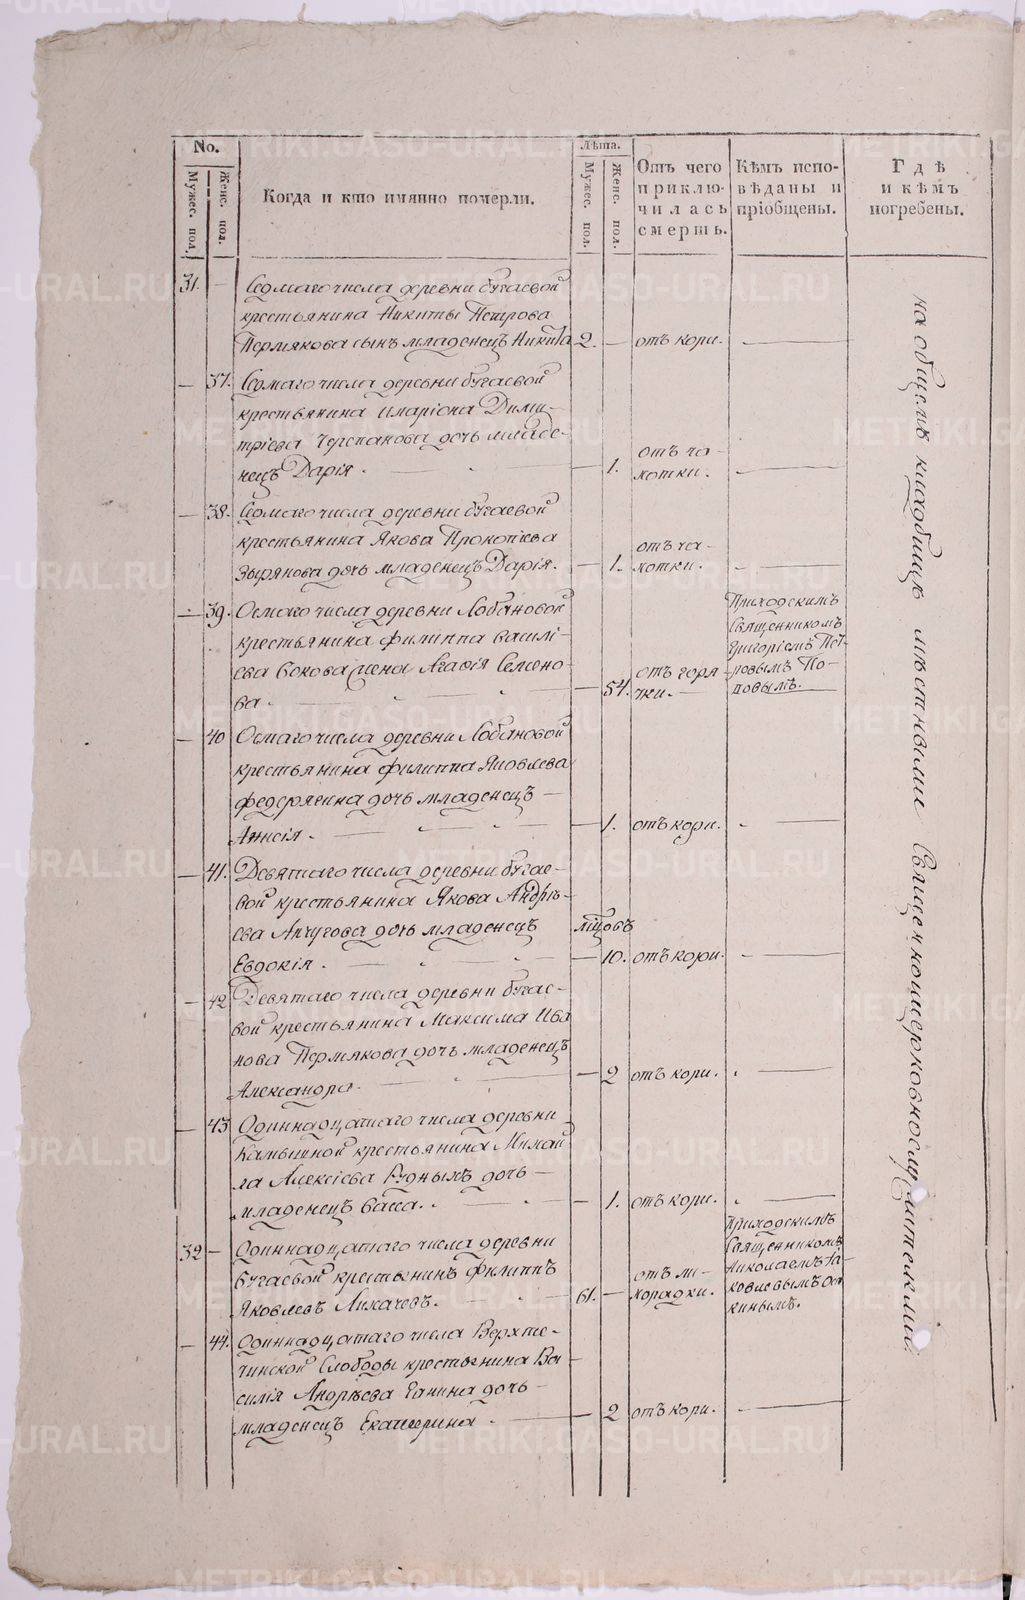 No.
Мужес. пол.
Женс. пол.
Когда и кто имянно померли.
Лѣта.
Мужес. пол.
Женс. пол.
Отъ чего
приклю-
чилась
смерть.
Кѣмъ испо-
вѣданы и
пріобщены.
Гдѣ
и кѣмъ
погребены.
31. — Седмаго числа деревни Бугаевой
крестьянина Никиты Петрова
Пермякова сынъ младенецъ Никита 2. — отъ кори. —
— 37. Седмаго числа деревни Бугаевой
крестьянина Иларіона Дими-
тріева Черепанова дочь младе-
нецъ Дарія. — 1. отъ ча-
хотки. —
— 38. Седмаго числа деревни Бугаевой
крестьянина Якова Прокопіева
Зырянова дочь младенецъ Дарія. — 1. отъ ча-
хотки. —
— 39. Осмаго числа деревни Лобановой
крестьянина Филиппа Василі-
ева Бокова жена Агафія Семено-
ва. — 54. отъ горя
чки. —
Приходскимъ
Священникомъ
Григоріемъ Пет-
ровымъ По-
повымъ.
— 40 Осмаго числа деревни Лобановой
крестьянина Филиппа Яковлева
Федерягина дочь младенецъ —
Аннсія. — 1. отъ кори. —
— 41. Девятаго числа деревни Бугае-
вой крестьянина Якова Андрѣ-
ева Анчугова дочь младенецъ
Евдокія. — мѣсяцовъ
10. отъ кори. —
— 42 Девятаго числа деревни Бугае-
вой крестьянина Максима Ива
нова Пермякова дочь младенецъ
Александра. — 2 отъ кори. —
— 43 Одиннадцатаго числа деревни
Камышной крестьянина Михай
ла Алексіева Рудныхъ дочь —
младенецъ Васса. — 1. отъ кори. —
32 — Одиннадцатаго числа деревни
Бугаевой крестьянинъ Филиппъ
Яковлевъ Лихачевъ. — 61. — отъ ли-
хорадки.
Приходскимъ
Священникомъ
Николаемъ Іа-
ковлевымъ
— 44. Одиннадцатаго числа Верхте-
чинской Слободы крестьянина Ва
силія Андреева Ганина дочь —
младенецъ Екатерина. — 2 отъ кори. —
на общемъ кладбищѣ мѣстными Священноцерковнослужителями
METRIKI.GASO-URAL.RU